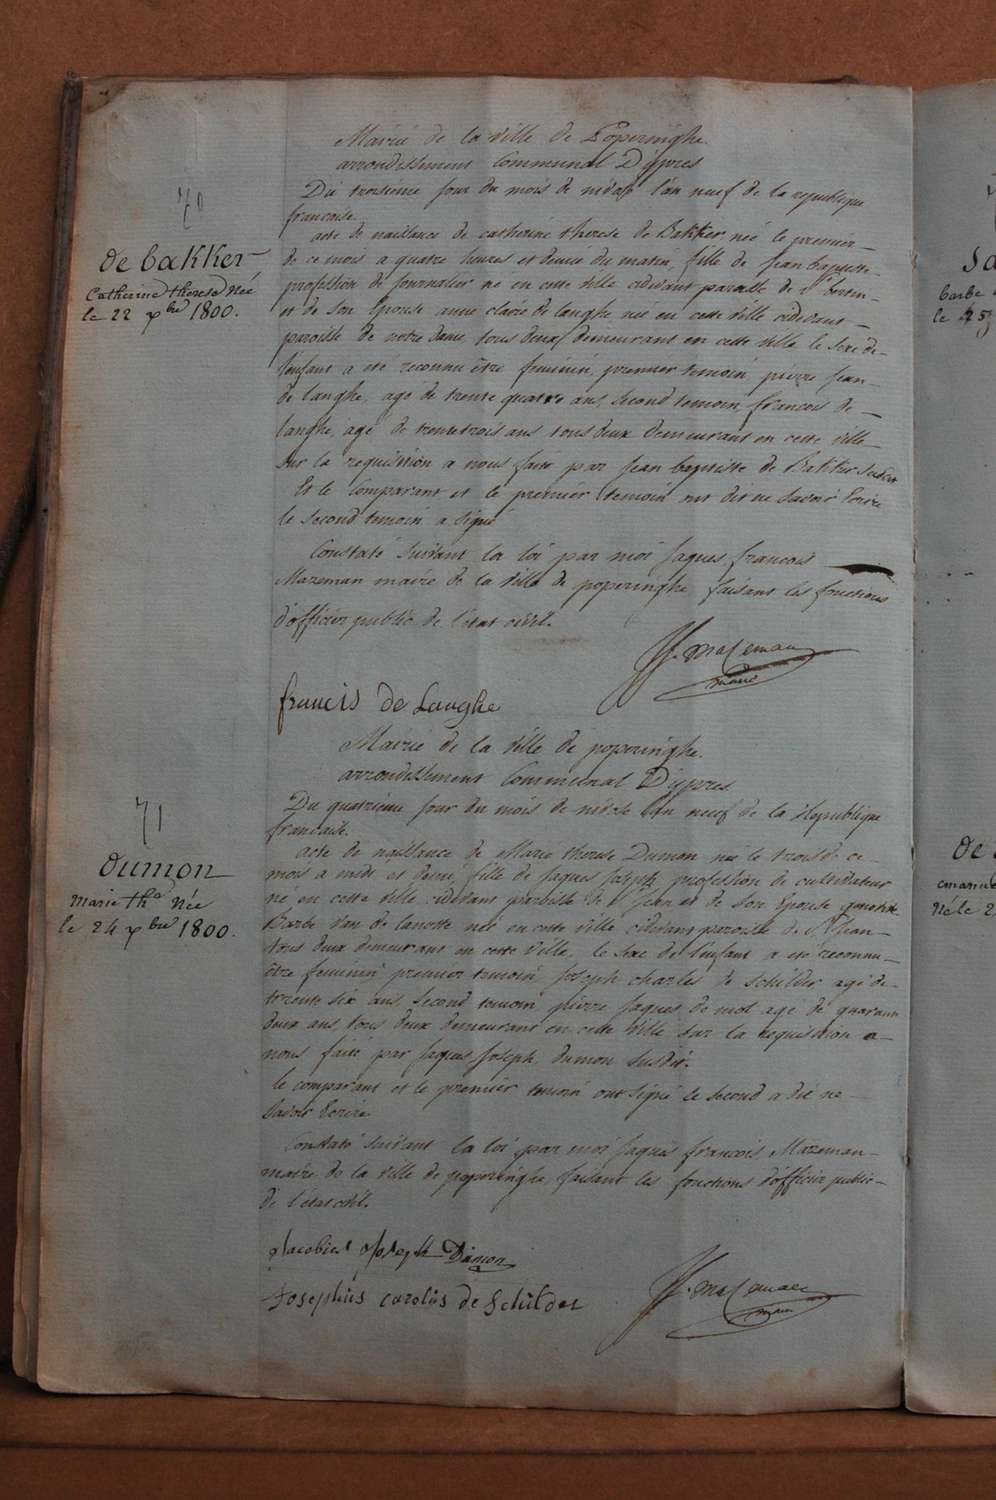 70
de bakker
Catherine therese Née
le 22 xbre 1800.
Mairie de la ville de Poperinghe.
arrondissement Communal D'ypres
Du troisieme jour du mois de nivose l'an neuf de la republique
francaise.
acte de naissance de catherine therese de Bakker née le premier
de ce mois a quatre heures et demie du matin, fille de jean baptiste
profession de journalier né en cette ville cidevant paroisse de St bertin
et de son Epouse anne claire de langhe née en cette ville cidevant
paroisse de notre dame, tous deux demeurant en cette ville le sexe de
l'enfant a eté reconnu être feminin, premier temoin pierre jean
de langhe, age de trente quatre ans, second temoin francois de
langhe, agé de trente trois ans tous deux demeurant en cette ville
sur la requisition a nous faite par jean baptiste de Bakker susdit
Et le Comparant et le premier temoin ont dit ne savoir Ecrire
le second temoin a signé
Constaté suivant la loi par moi jaques francois
Mazeman maire de la ville de poperinghe faisant les fonctions
d'officier public de l'état civil.
JF. Mazeman
maire
francis de Langhe
71
dumon
marie tha Née
le 24 xbre 1800.
Mairie de la ville de poperinghe.
arrondissement Communal D'ypres
Du quatrieme jour du mois de nivose l'an neuf de la Republique
francaise.
acte de naissance de Marie therese Dumon née le trois de ce
mois a midi et demi, fille de jaques joseph profession de cultivateur
né en cette ville cidevant paroisse de St jean et de son Epouse
Barbe Van de lanotte née en cette ville cidevant paroisse de St jean
tous deux demeurant en cette ville, le sexe de l'enfant a eté reconnu
être feminin premier temoin joseph charles de schilder agé de
trente six ans, second temoin pierre jaques de mol agé de quarante
deux ans, tous deux demeurant en cette ville sur la requisition a
nous faite par jaques joseph dumon susdit.
le comparant et le premier temoin ont signé le second a dit ne
savoir Ecrire
Constaté suivant la loi par moi jaques francois Mazeman
maire de la ville de poperinghe, faisant les fonctions d'officier public
de l'état civil.
Jacobus Joseph Dumon
JF. Mazeman
maire
Josephus carolus de Schilder